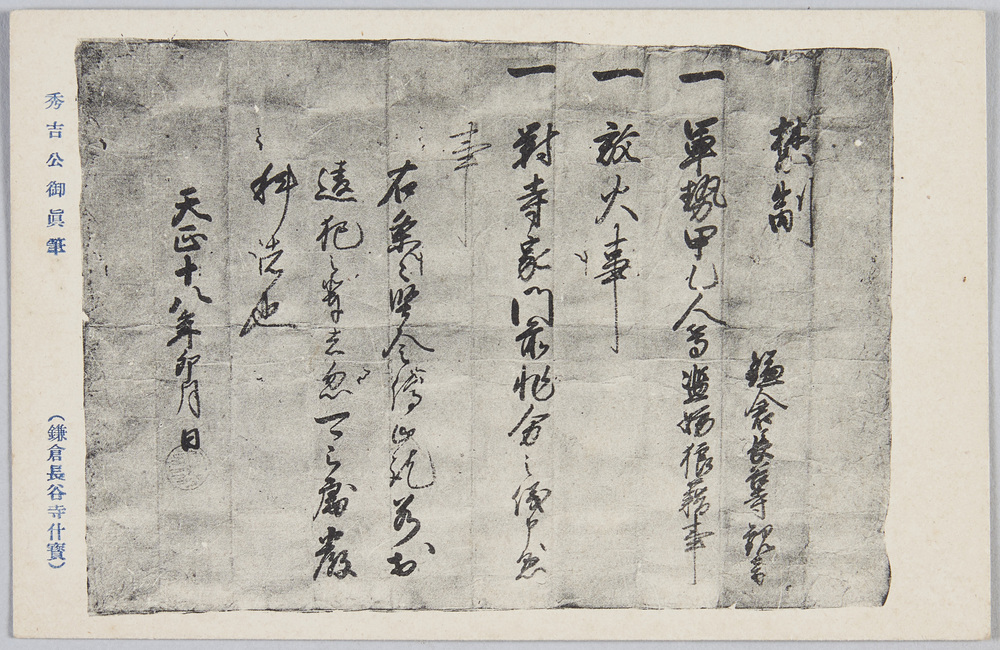 禁制
鎌倉長谷寺観音
一 軍勢甲乙人等濫妨狼藉事
一 放火事
一 対寺家門前非分之儀申懸
事
右条々堅令停止訖若於
違犯之輩者忽可被処厳
科者也
天正十八年卯月 日
秀吉公御眞筆
(鎌倉長谷寺什寶)